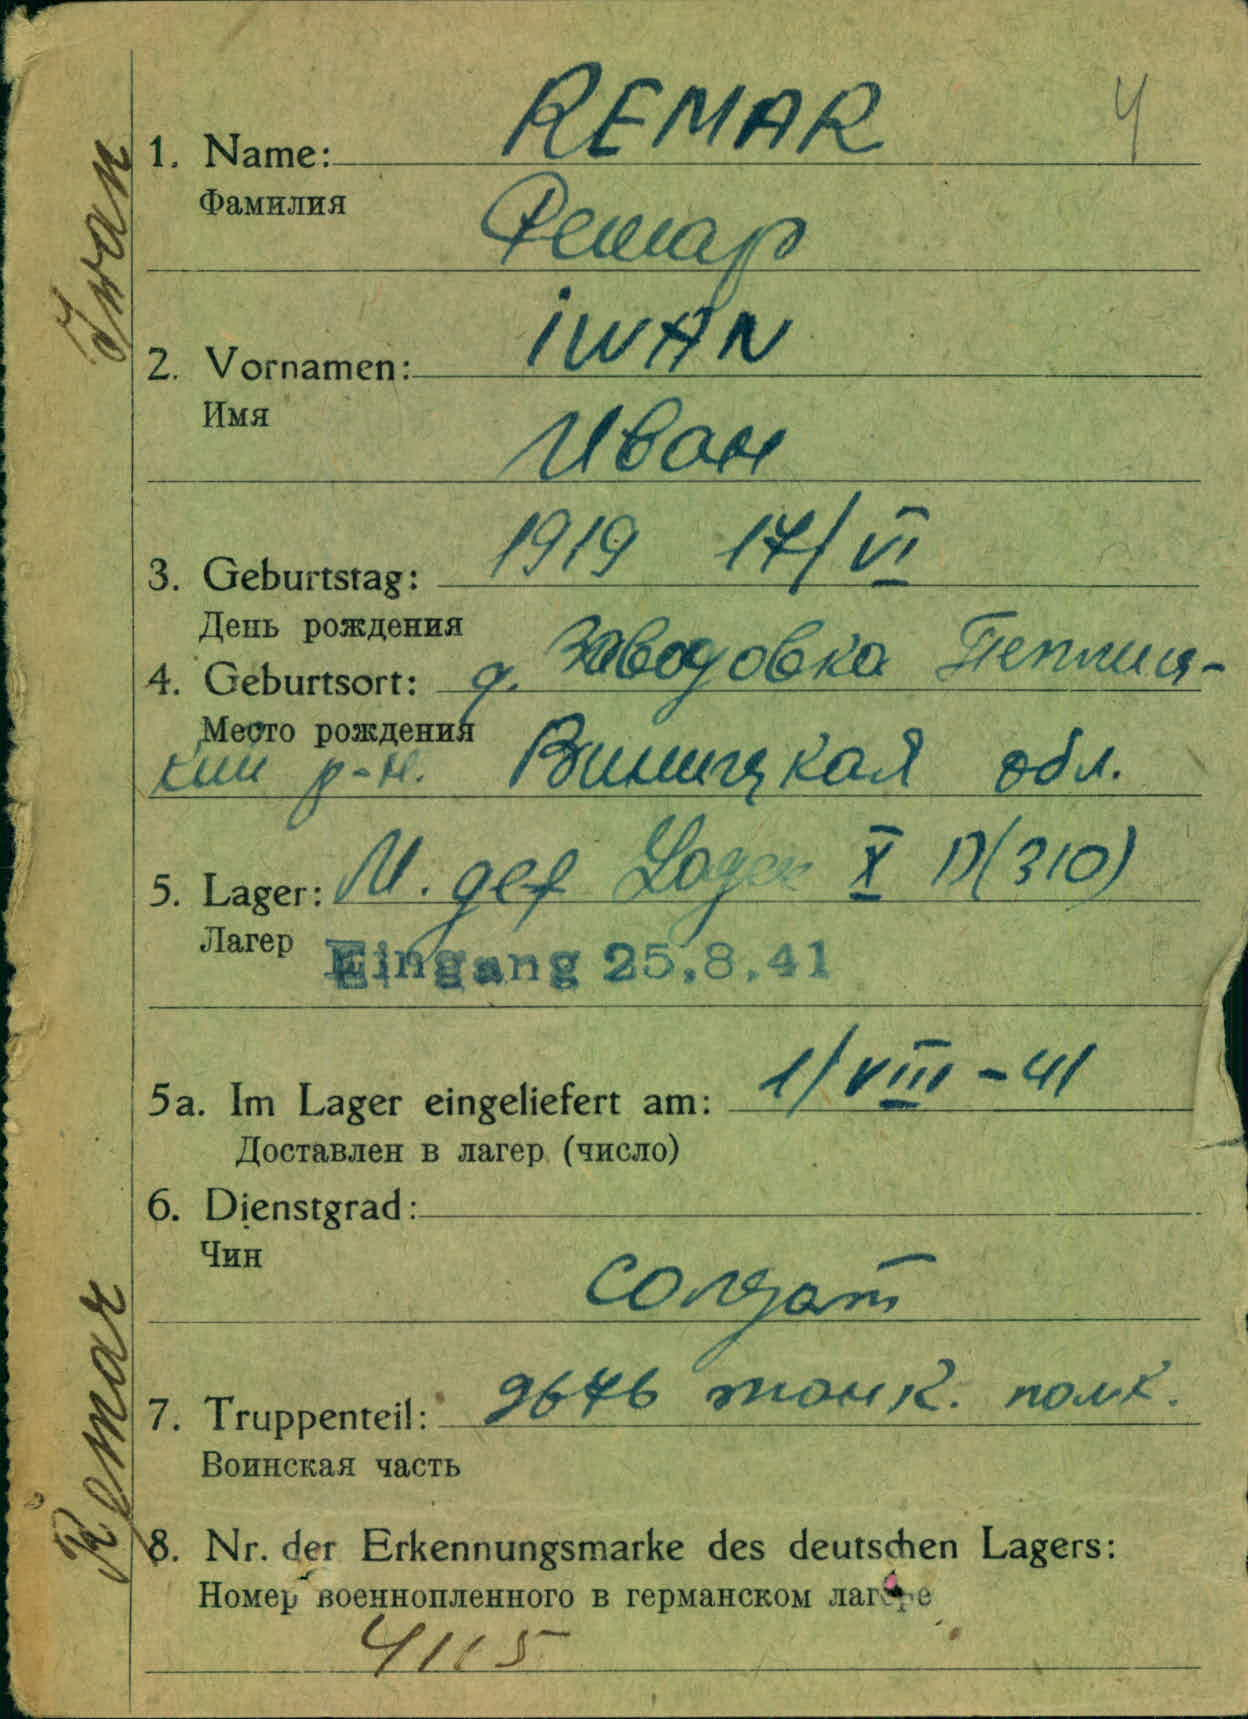 REMAR
4
1. Name:
Фамилия
Ремар
IWAN
2. Vornamen:
Имя
Иван
1919 17/VI
3. Geburtstag:
День рождения
4. Geburtsort: д. Заводовка Теплиц-
Место рождения
кий р-н. Виницкая обл.
5. Lager: M. gef Lager X D(310)
Лагер
Eingang 25.8.41
5a. Im Lager eingeliefert am: 1/VIII-41
Доставлен в лагер (число)
6. Dienstgrad:
Чин
солдат
7. Truppenteil: танк. полк.
Воинская часть
8. Nr. der Erkennungsmarke des deutschen Lagers:
Номер военнопленного в германском лагере
4115
Remar Iwan